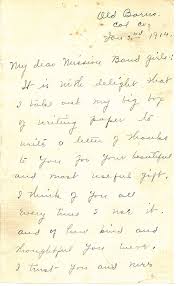 Old Barns.
Col. Co.
Jan 2nd, 1914.
My dear Mission Band girls:
It is with delight that
I take out my big box
of writing paper to
write a letter of thanks
to you for your beautiful
and most useful gift.
I think of you all
every time I use it
and of how kind and
thoughtful you were.
I trust you and